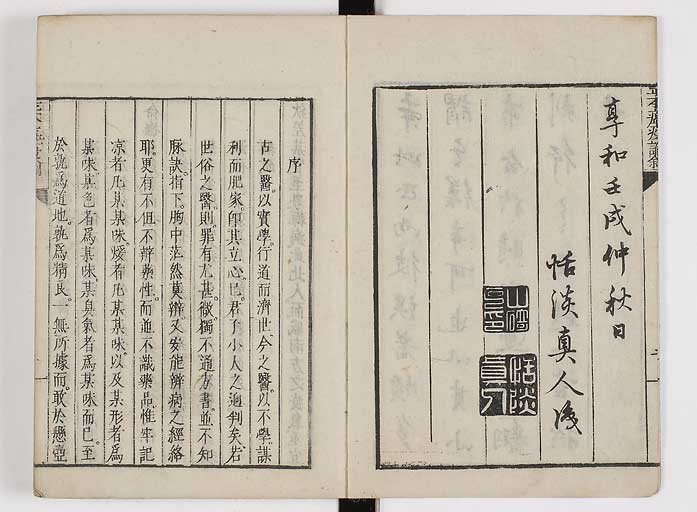 享和壬戌仲秋日
恬淡真人
恬淡
真人
序
古之醫以實學行道而濟世今之醫以不學謀
利而肥家即其立心也君子小人之適判矣若
世俗之醫則罪有尤甚微獨不通方書並不知
脉訣指下胸中茫然莫辨又安能辨病之經絡
耶更有不但不辨藥性而並不識藥品惟牢記
凉者凡某某味煖者凡某某味以及某形者爲
某味某色者爲某味某臭氣者爲某味而已至
於孰爲道地孰爲精良一無所據而敢於懸壺